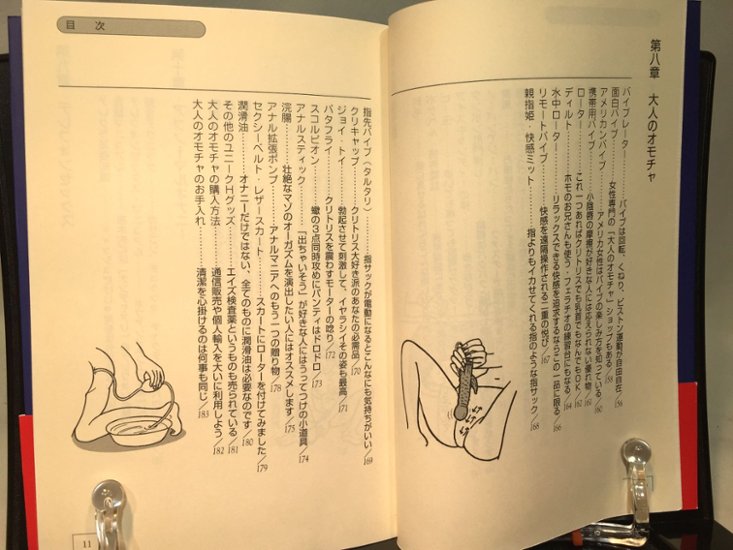 第八章 大人のオモチャ
バイブレーター……バイブは回転、くねり、ピストン運動が自由自在／156
面白バイブ……女性専門の「大人のオモチャ」ショップもある／158
アメリカンバイブ……アメリカ女性はバイブの楽しみ方を知っている／160
携帯用バイブ……小陰唇の摩擦が好きな人には応えられない優れ物／161
ローター……これ一つあればクリトリスでも乳首でもなんでもOK／162
ディルト……ホモのお兄さんも使う・フェラチオの練習台にもなる／164
水中ローター……リラックスできる快感を追求するならこの一品に限る／166
リモートバイブ……快感を遠隔操作される二重の悦び／167
親指姫・快感ミット……指よりもイカせてくれる指のような指サック／168
目 次
指先バイブ（タルタリ）……指サックが電動になるとこんなにも気持ちがいい／169
クリキャップ……クリトリス大好き派のあなたの必需品／170
ジョイ・トイ……勃起させて刺激して、イヤラシイその姿も最高／171
バタフライ……クリトリスを震わすモーターの唸り／172
スコルピオン……蠍の3点同時攻めにパンティはドロドロ／173
アナルスティック……「出ちゃいそう」が好きな人にはうってつけの小道具／174
浣腸……壮絶なマゾのオーガズムを演出したい人にはオススメします／175
アナル拡張ポンプ……アナルマニアへのもう一つの贈り物／178
セクシーベルト・レザースカート……スカートにローターを付けてみました／179
潤滑油……オナニーだけではない、全てのものに潤滑油は必要なのです／180
その他のユニークHグッズ……エイズ検査薬というものも売られている／181
大人のオモチャの購入方法……通信販売や個人輸入を大いに利用しよう／182
大人のオモチャのお手入れ……清潔を心掛けるのは何事も同じ／183
11